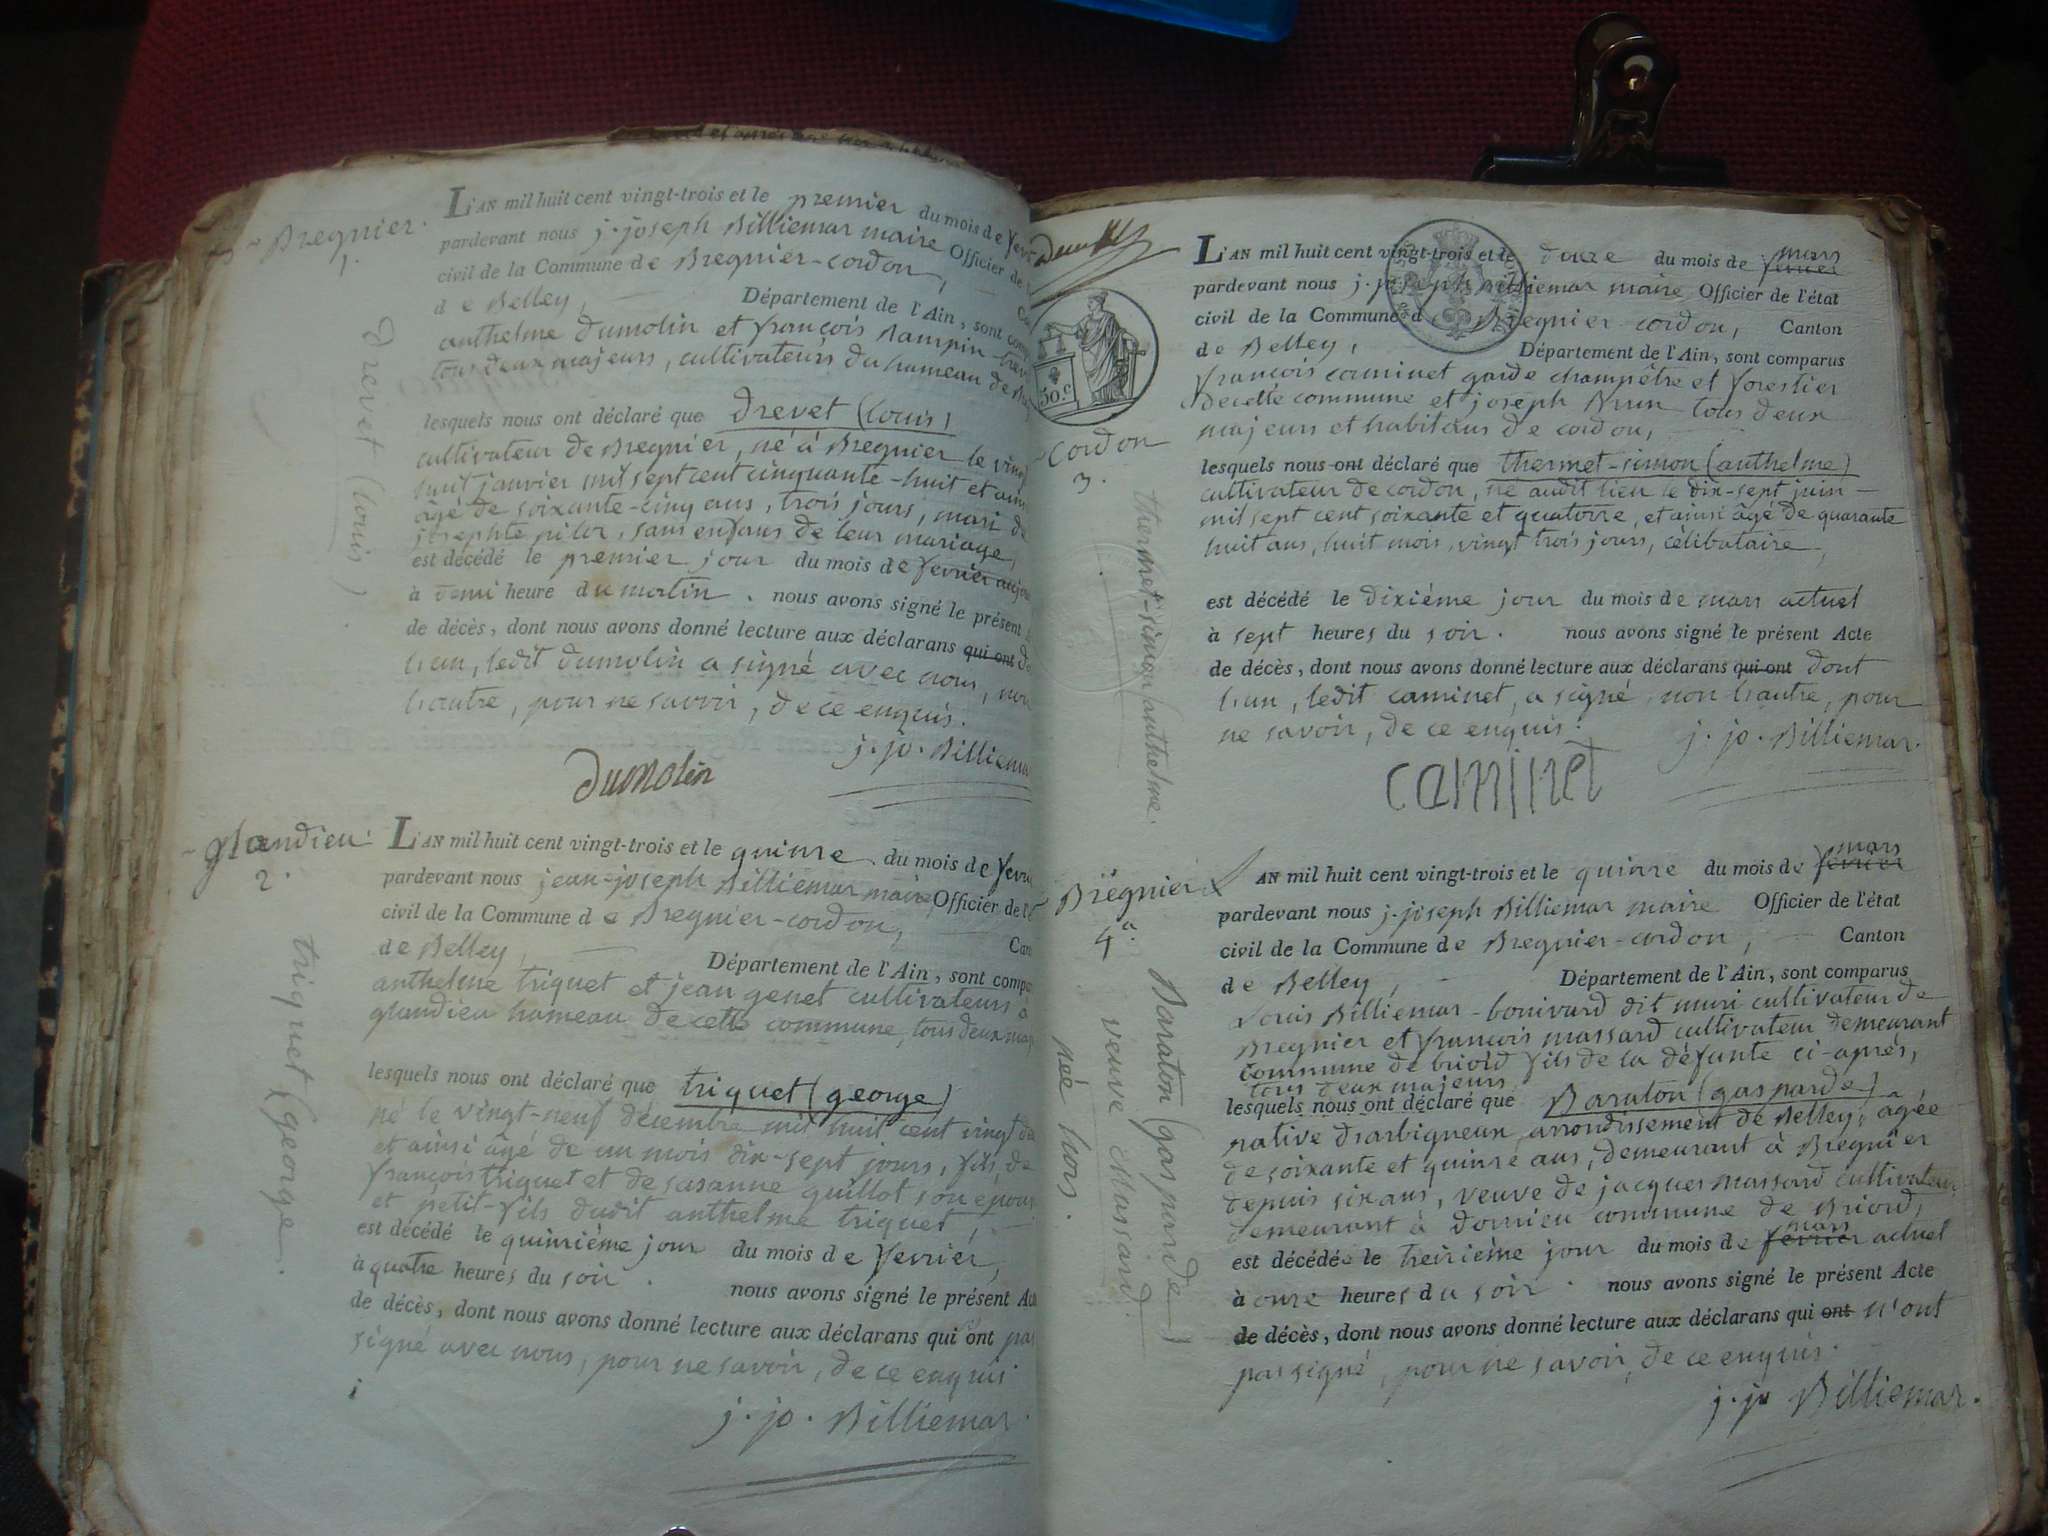 Bregnier.
1.
drevet (louis)
L'AN mil huit cent vingt-trois et le premier du mois de
pardevant nous j. joseph Billiemaz maire Officier de
civil de la Commune de Bregnier-cordon,
de Belley, Département de l'Ain, sont
anthelme dumolin et françois
tous deux majeurs, cultivateurs du hameau de
lesquels nous ont déclaré que drevet (louis)
cultivateur de Bregnier, né à Bregnier le vingt
huit janvier mil sept cent cinquante-huit et ainsi
âgé de soixante-cinq ans, trois jours, mari de
sans enfans de leur mariage,
est décédé le premier jour du mois de fevrier
à demi heure du matin. nous avons signé le présent
de décès, dont nous avons donné lecture aux déclarans qui ont
l'un, ledit dumolin a signé avec nous, non
l'autre, pour ne savoir, de ce enquis.
j. jo. Billiemaz
dumolin
glandieu.
2.
triquet (george.
L'AN mil huit cent vingt-trois et le quinze du mois de
pardevant nous jean-joseph Billiemaz maire Officier de
civil de la Commune de Bregnier-cordon,
de Belley, Département de l'Ain, sont
anthelme triquet et jean genet cultivateurs à
glandieu hameau de cette commune, tous deux
lesquels nous ont déclaré que triquet (george)
né le vingt-neuf décembre mil huit cent vingt
et ainsi âgé de un mois dix-sept jours, fils de
françois triquet et de susanne guillot son
et petit-fils dudit anthelme triquet
est décédé le quinzième jour du mois de fevrier,
à quatre heures du soir. nous avons signé le présent
de décès, dont nous avons donné lecture aux déclarans qui ont pas
signé avec nous, pour ne savoir, de ce enquis
j. jo. Billiemaz.
50.c
Cordon
3.
thermet-simon (anthelme.
L'AN mil huit cent vingt-trois et le douze du mois de fevrier mars
pardevant nous j. joseph Billiemaz maire Officier de l'état
civil de la Commune de Bregnier-cordon, Canton
de Belley, Département de l'Ain, sont comparus
françois caminet garde champêtre et forestier
de cette commune et joseph tous deux
majeurs et habitans de cordon,
lesquels nous ont déclaré que thermet-simon (anthelme)
cultivateur de cordon, né audit lieu le dix-sept juin
mil sept cent soixante et quatorze, et ainsi âgé de quarante
huit ans, huit mois, vingt trois jours, célibataire,
est décédé le dixiéme jour du mois de mars actuel
à sept heures du soir. nous avons signé le présent Acte
de décès, dont nous avons donné lecture aux déclarans qui ont dont
l'un, ledit caminet, a signé, non l'autre, pour
ne savoir, de ce enquis.
j. jo. Billiemaz.
caminet
Bregnier
4.
Baraton (gasparde)
veuve Massard.
née
AN mil huit cent vingt-trois et le quinze du mois de fevrier mars
pardevant nous j. joseph Billiemaz maire Officier de l'état
civil de la Commune de Bregnier-cordon, Canton
de Belley, Département de l'Ain, sont comparus
Louis Billiemaz-bonivard dit cultivateur de
Bregnier et françois massard cultivateur demeurant
commune de briord fils de la défunte ci-après,
tous deux majeurs
lesquels nous ont déclaré que Baraton (gasparde)
native d'arbigneux, arrondissement de Belley, âgée
de soixante et quinze ans, demeurant à Bregnier
depuis six ans, veuve de jacques massard cultivateur
demeurant à dornieu commune de Briord,
est décédée le treizième jour du mois de fevrier mars actuel
à onze heures du soir. nous avons signé le présent Acte
de décès, dont nous avons donné lecture aux déclarans qui ont n'ont
pas signé, pour ne savoir, de ce enquis.
j. jo Billiemaz.